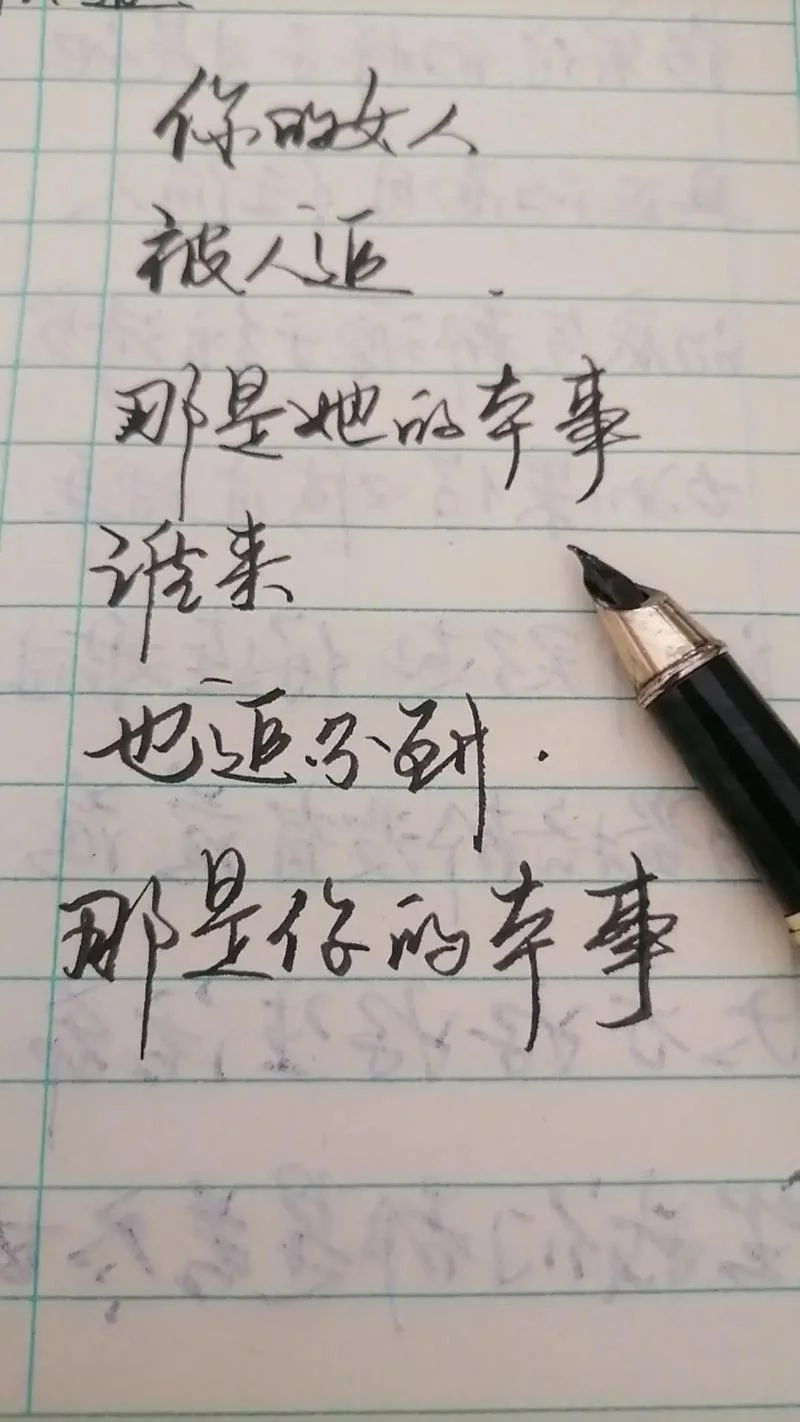 你的女人
被人追
那是她的本事
谁来
也追不到.
那是你的本事